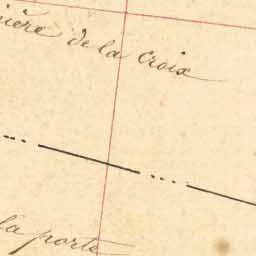 ière de la Croix
la porte